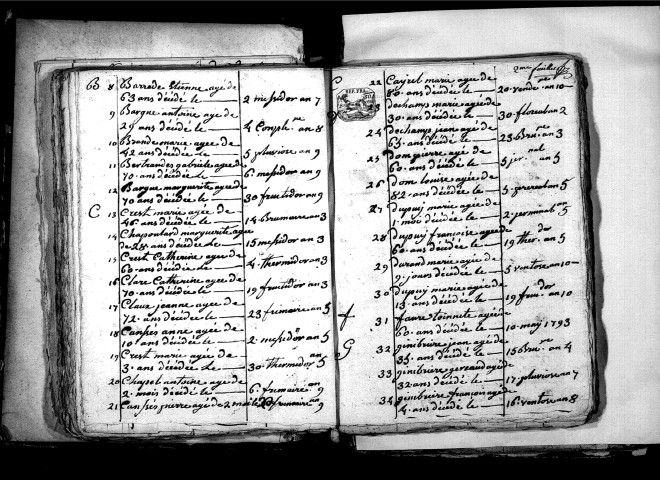 B 8 Barrade Etienne agé de
63 ans décédé le 2 messidor an 7
9 Bargue antoine agé de
29 ans décédé le 4 Comple.re an 8
10 Brande marie agée de
42 ans décédée le 5 pluviose an 9
11 Bertrandes gabriele agée de
70 ans décédée le 6 messidor an 9
12 Bargue marguerite agée de
70 ans décédée le 30 fructidor an 9
C 13 Crest marie agée de
46 ans décédée le 14 brumaire an 3
14 Chapoulard marguerite agée
de 28 ans décédée le 15 messidor an 3
15 Crest Catherine agée de
60 ans décédée le 4 thermidor an 3
16 Clare Catherine agée de
70 ans décédée le 19 fructidor an 3
17 Claux jeanne agée de
72 ans décédée le 23 frimaire an 5
18 Canpes anne agée de
10 ans décédée le 2 messidor an 5
19 Crest marie agée de
3 ans décédée le 30 thermidor an 5
20 Chapel antoine agé de
2 mois décédé le 6 frimaire an 9
21 Canpés pierre agé de 2 mois frimaire an 9
2me feuillet
22 Cayrel marie agée de
80 ans décédée le 20 vendre an 10
dechamps marie agée de
30 ans décédée le 30 floreal an 2
24 dechamps jean agé de
65 ans décédé le 23 bru.re an 3
25 Dom pierre agé de
60 ans décédé le 5 ger.nal an 5
26 Dom louise agée de
82 ans décédée le 5 germinal an 5
27 Dupuy marie agée de
1 mois décédée le 2 germinal an 5
28 Dupuy françoise agée de
60 ans décédée le 19 ther.dor an 5
29 Durand marie agée de
9 jours décédée le 5 ventose an 10
30 dupuy marie agée de
13 ans décédée le 19 fru.dor an 10
f 31 favre toinnete agée de
60 ans décédée le 10 may 1793
G 32 ginibriere jean agé de
35 ans décédé le 15 bru.re an 4
33 ginibriere geraud agé de
32 ans décédé le 17 pluviose an 7
34 ginibriere françois agé de
4 ans décédé le 16 ventose an 8